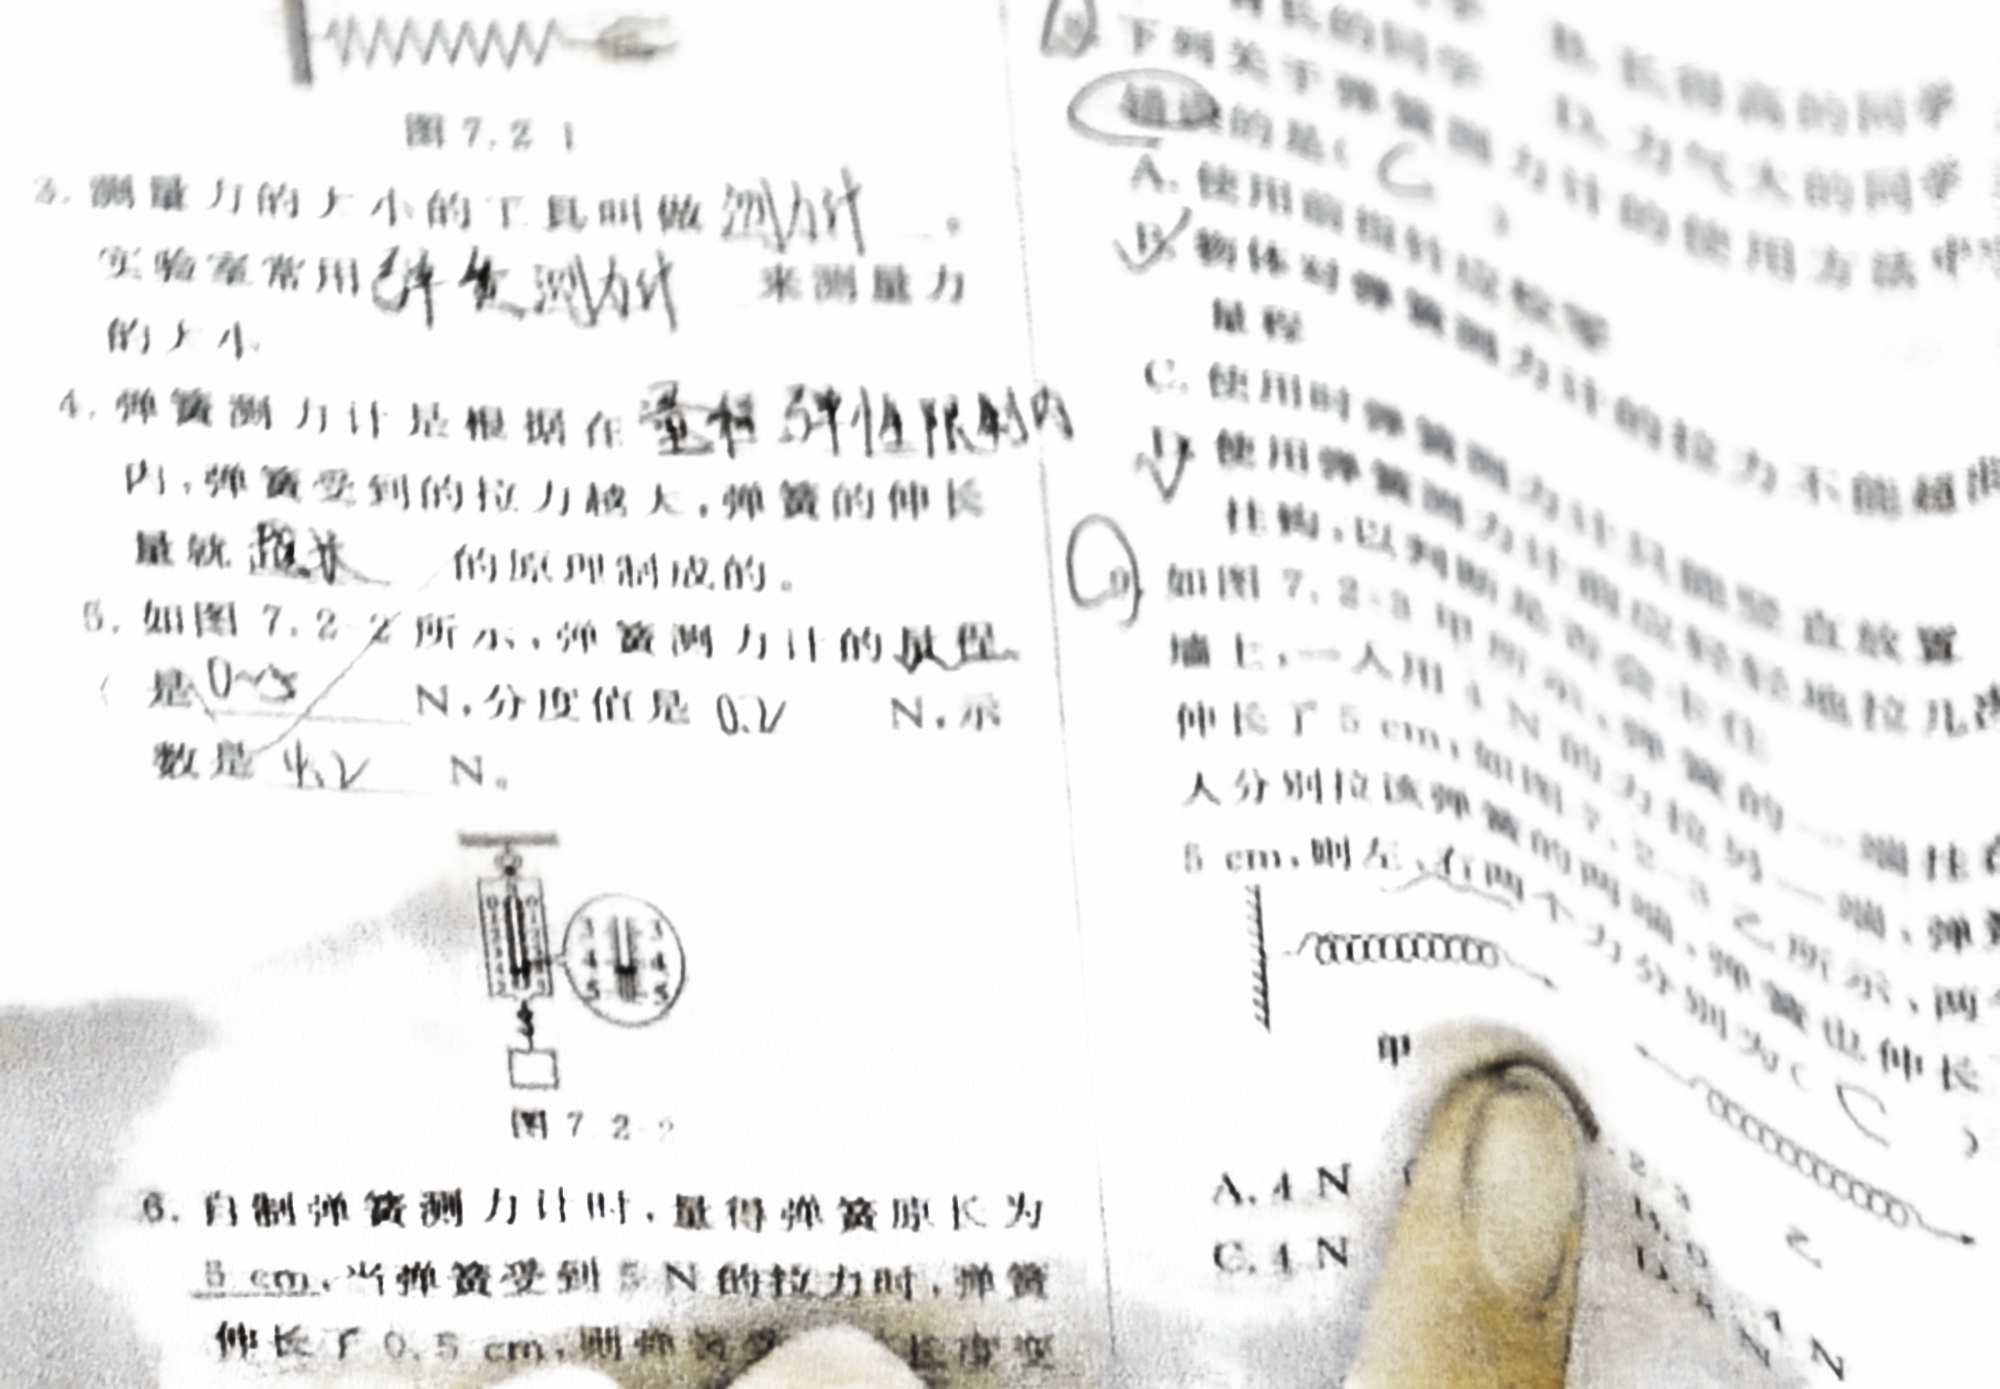 图 7.2 1
3. 测量力的大小的工具叫做 测力计 。
实验室常用 弹簧测力计 来测量力
的大小
4. 弹簧测力计是根据在 弹性限制内
内,弹簧受到的拉力越大,弹簧的伸长
量就 越长 的原理制成的。
5. 如图 7.2-2 所示,弹簧测力计的量程
是 0~5 N,分度值是 0.2 N,示
数是 4.2 N。
0 0
3 3
4 4
5 5
图 7 2-2
6. 自制弹簧测力计时,量得弹簧原长为
5 cm,当弹簧受到 5 N 的拉力时,弹簧
伸长了 0.5 cm,则弹 长度变
长的同学 B. 长得高的同学
D. 力气大的同学
8. 下列关于弹簧测力计的使用方法中
错误的是( C )
A. 使用前指针应校零
B. 物体对弹簧测力计的拉力不能超
量程
C. 使用时弹簧测力计只能竖直放置
D. 使用弹簧测力计前应轻轻地拉几
挂钩,以判断是否会卡住
9. 如图 7.2-3 甲所示,弹簧的一端挂
墙上,一人用 4 N 的力拉另一端,弹
伸长了 5 cm,如图 7.2-3 乙所示,两
人分别拉该弹簧的两端,弹簧也伸长
5 cm,则左、右两个力分别为( C )
甲
乙
A. 4 N
C. 4 N